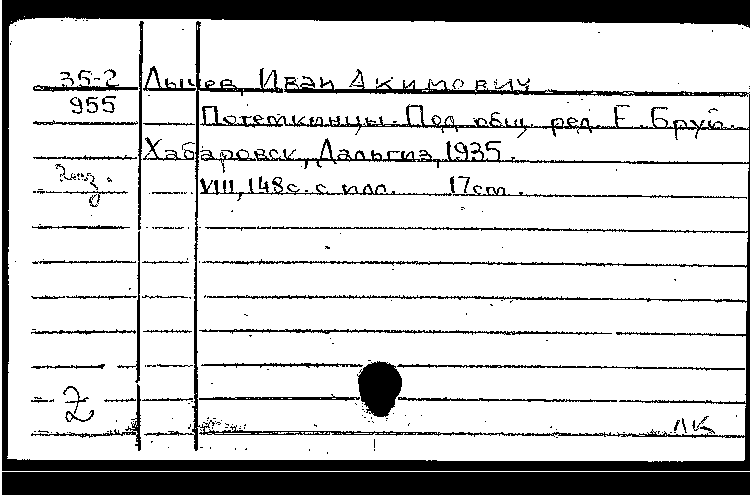 35-2 Лычев, Иван Акимович
955 Потемкинцы. Под общ. ред. Е. Бруй.
Хабаровск, Дальгиз, 1935.
VIII, 148с. с илл. 17cm.
2
ЛК